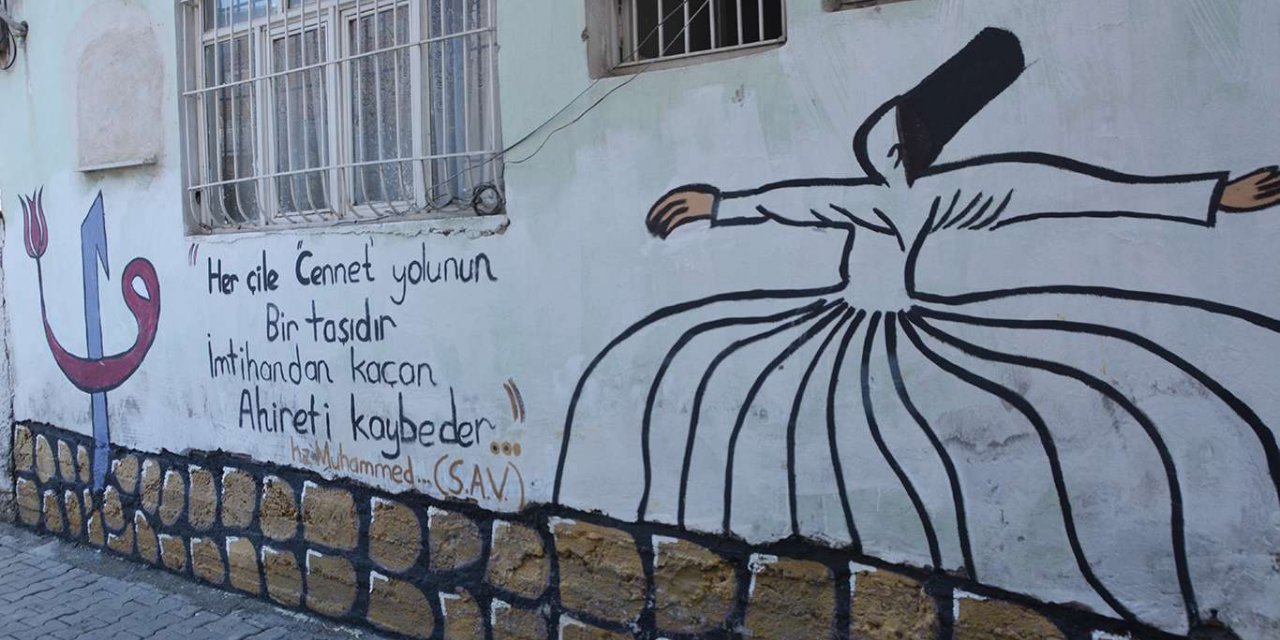 "Her çile "Cennet' yolunun
Bir taşıdır
İmtihandan kaçan
Ahireti kaybeder"...
hz. Muhammed... (S.A.V.)